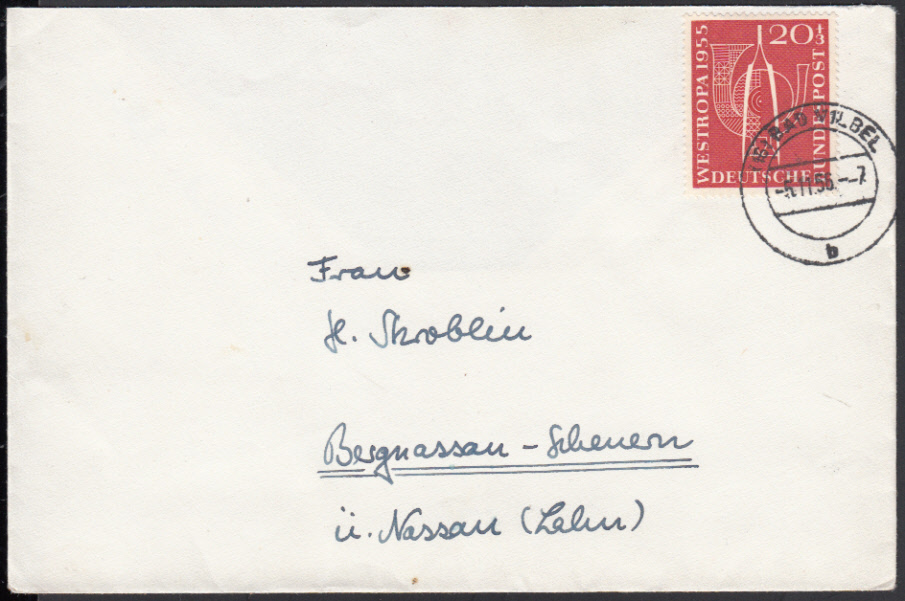 WESTROPA 1955
20+3
DEUTSCHE
BUNDESPOST
(16) BAD VILBEL
-5.11.55.--7
b
Frau
H. Skroblin
Bergnassau-Scheuern
ü. Nassau (Lahn)